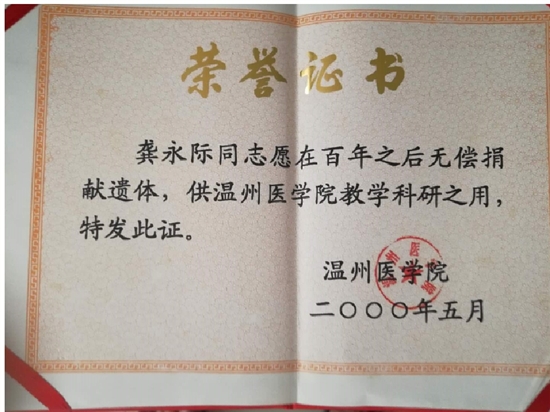 荣誉证书
龚永际同志愿在百年之后无偿捐
献遗体，供温州医学院教学科研之用，
特发此证。
温州医学院
二〇〇〇年五月